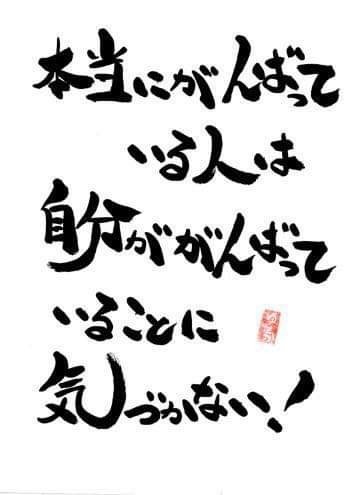 本当にがんばって
いる人は
自分ががんばって
いることに
気づかない!